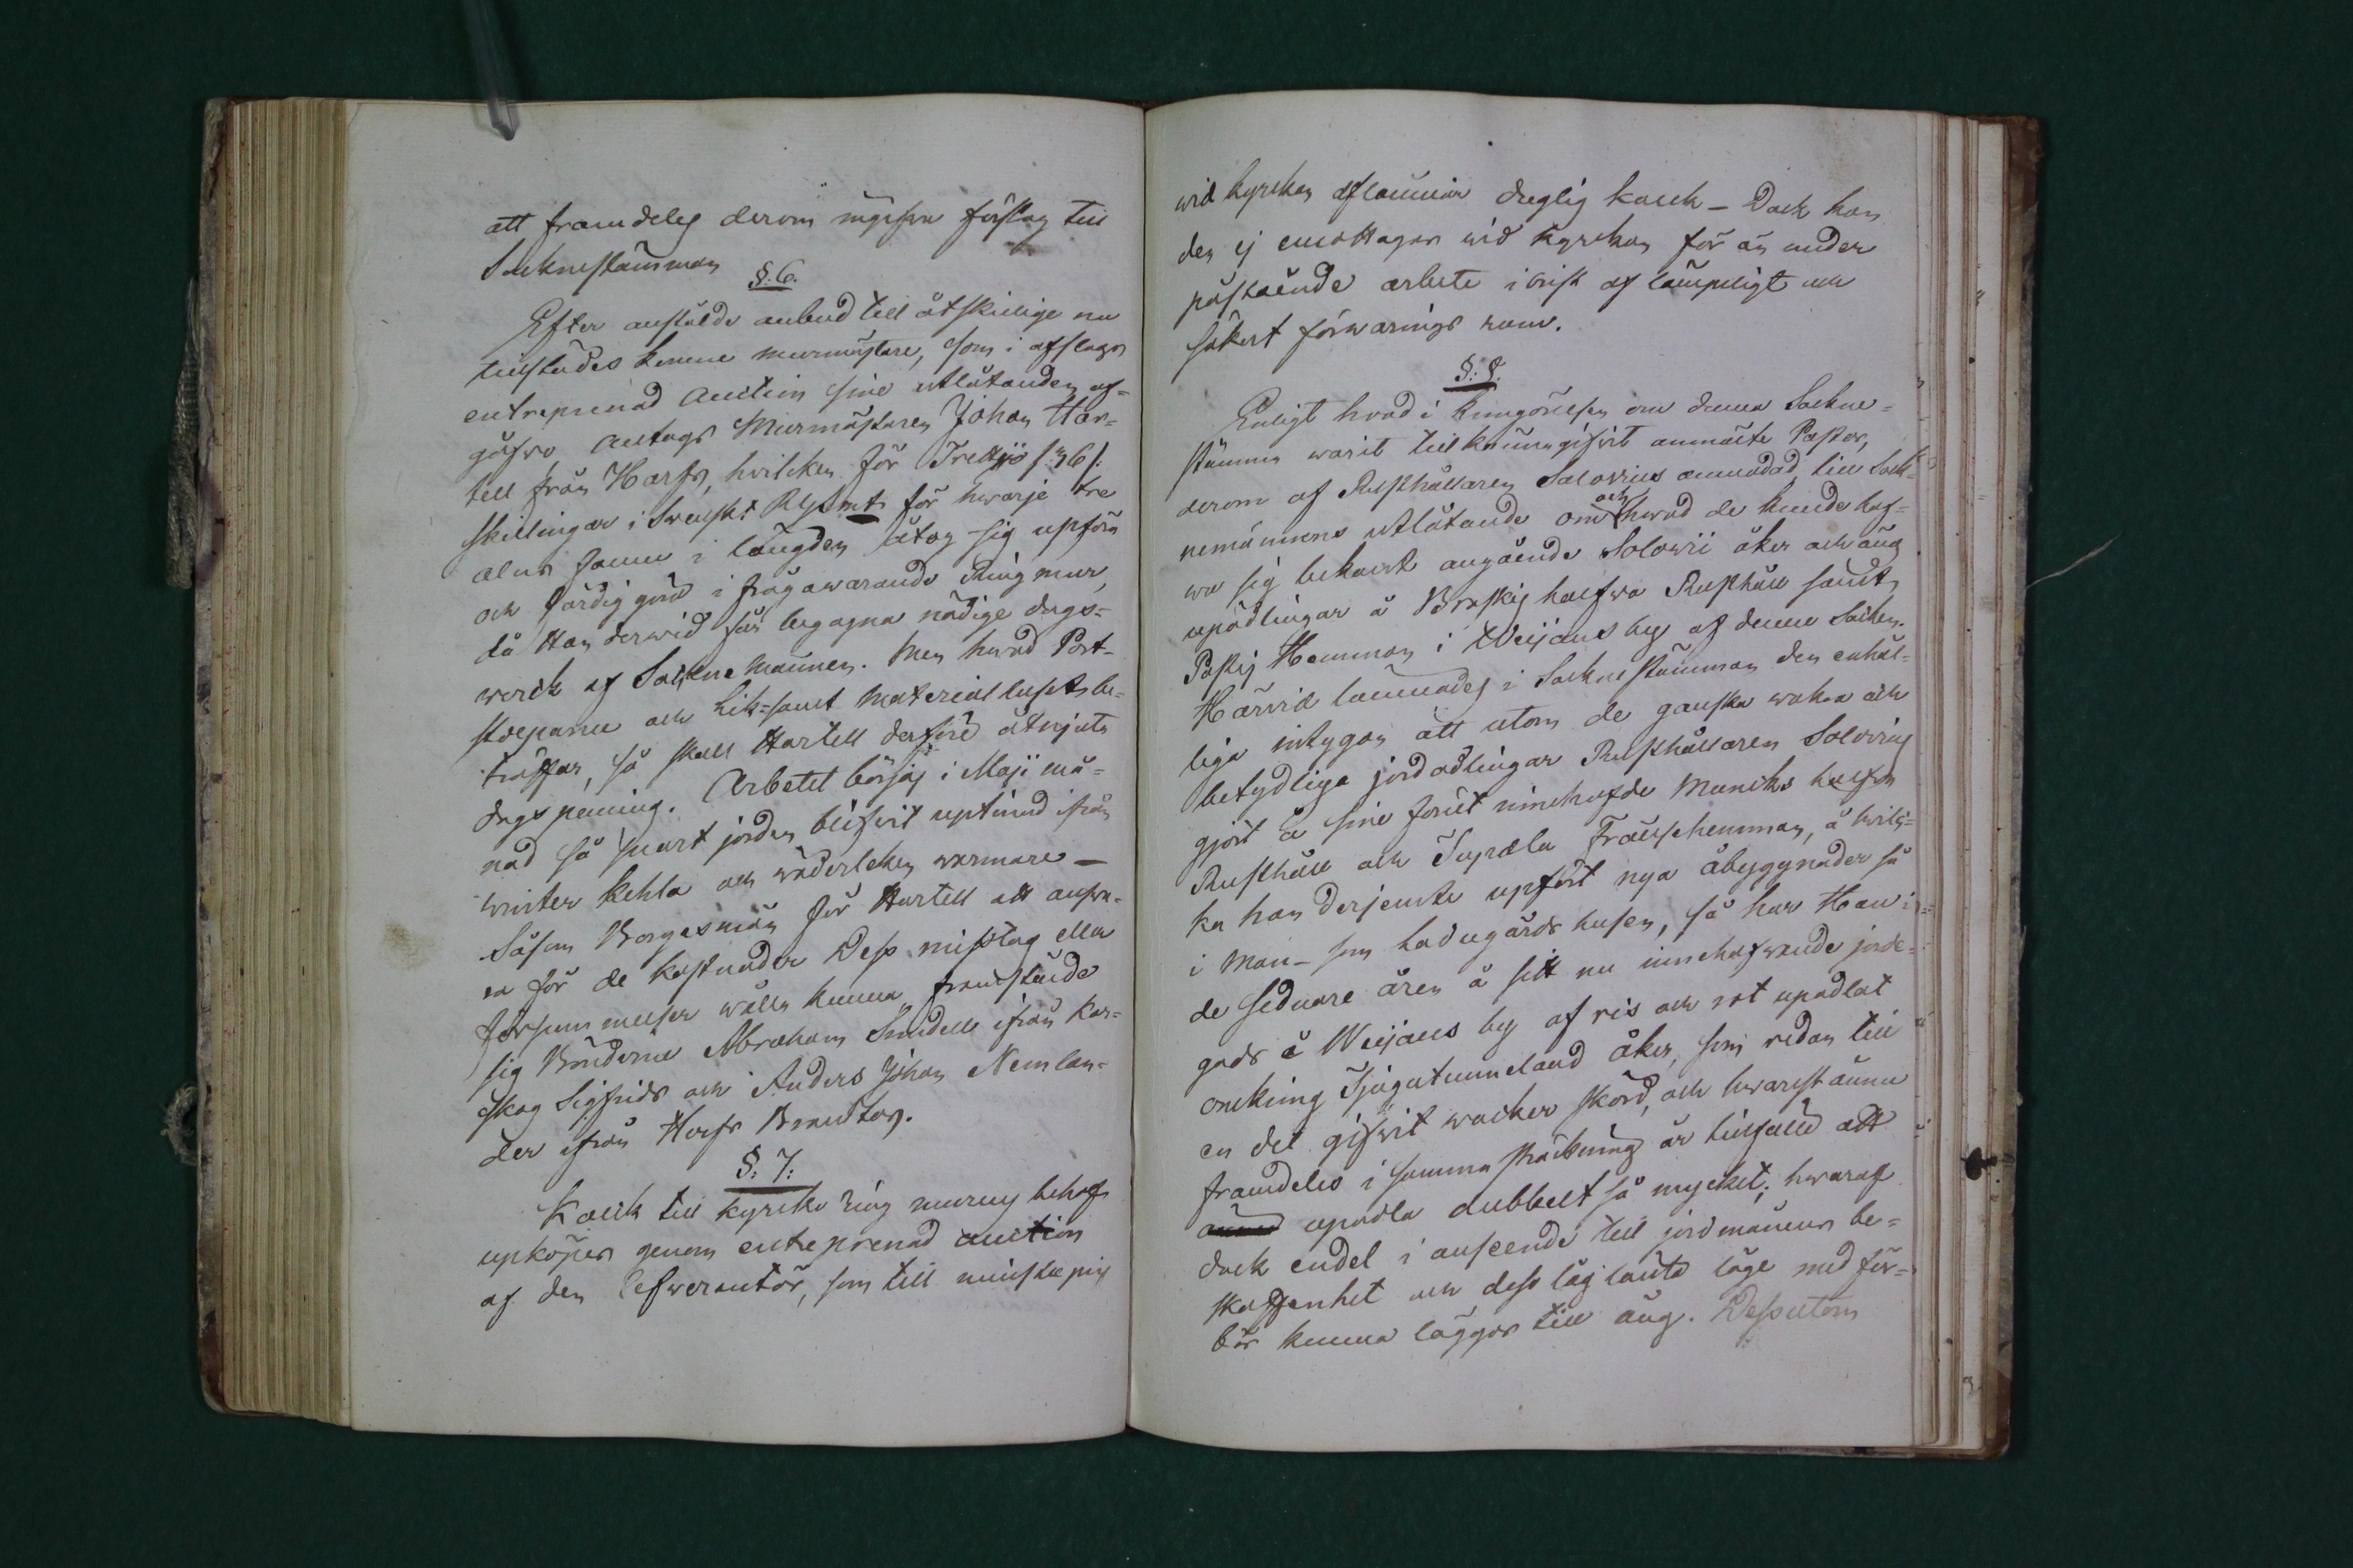 att framdeles derom uppgifva förslag till
Socknestämman
§. 6.
Efter anstälde anbud till åtskillige nu
tillstädes komne murmästare, som i afslags
entreprenad Auction sine utlåtanden af-
gåfvo antogs Murmästaren Johan Har-
tell från Harfs, hvilken för Trettijo /:36/:
skillingar i Swenskt RGsmt för hwarje tre
alns famn i längden åtog sig upföra
och färdig göra i fråga warande Ring mur,
då Han derwid får begagna nödige dags-
werck af Sockne Männen. Men hwad Port-
stolparne och Lik-samt Material huset be-
träffar, så skall Hartell derföre åtnjuta
dagspenning. Arbetet börjas i Maji må-
nad så snart jorden blifvit uptinad ifrån
winter kehla och wäderleken warmare —
Såsom Borgesmän för Hartell att answa-
ra för de kostnader Dess misstag eller
försummelser wålla kunna, framstälde
sig Bönderne Abraham Smedell ifrån Kar-
skog Sigfrids och Anders Johan Nemlan-
der ifrån Harfs Brusbo.
§. 7.
Kalck till kyrcko ring murens behof
upköpes genom entreprenad auction
af den Lefwerantör, som till minsta pris
wid kyrckan aflämnar duglig kalck — Dock kan
den ej emottagas wid kyrckan för än under
påstående arbete i brist af lämpeligt och
säkert förwarings rum.
§. 8.
Enligt hvad i kungörelsen om denna Sockne-
stämma warit tillkännagifvit anmälte Pastor,
derom af Rusthållaren Solovius anmodad, till Sock-
nemännens utlåtande om och hwad de kunde haf-
wa sig bekant angående Solovii åker och äng
upodlingar å Braskis halfwa Rusthåll samt
Paskis Hemman i Weijans by af denna Socken.
Härvid lämnades i Sockne stämman den enhäl-
liga intygan att utom de ganska wakra och
betydliga jordodlingar Rusthållaren Solovius
gjort å sine förut innehafde Muncks halfva
Rusthåll och Tupala Frälsehemman, å hvil-
ka han derjemte upfört nya åbyggnader så
i Man- som Ladugårds husen, så har Han i
de sednare åren å sitt nu innehafwande jorde-
gods å Weijans by af ris och rot upodlat
omkring Tjugutunneland åker, som redan till
en del gifvit wacker skörd, och hwarst ännu
framdeles i samma sträckning är tillfälle att
upodla dubbelt så mycket; hwaraf
dock endel i anseende till jordmånens be-
skaffenhet och dess låg länta läge med för-
bör kunna läggas till äng. Dessutom